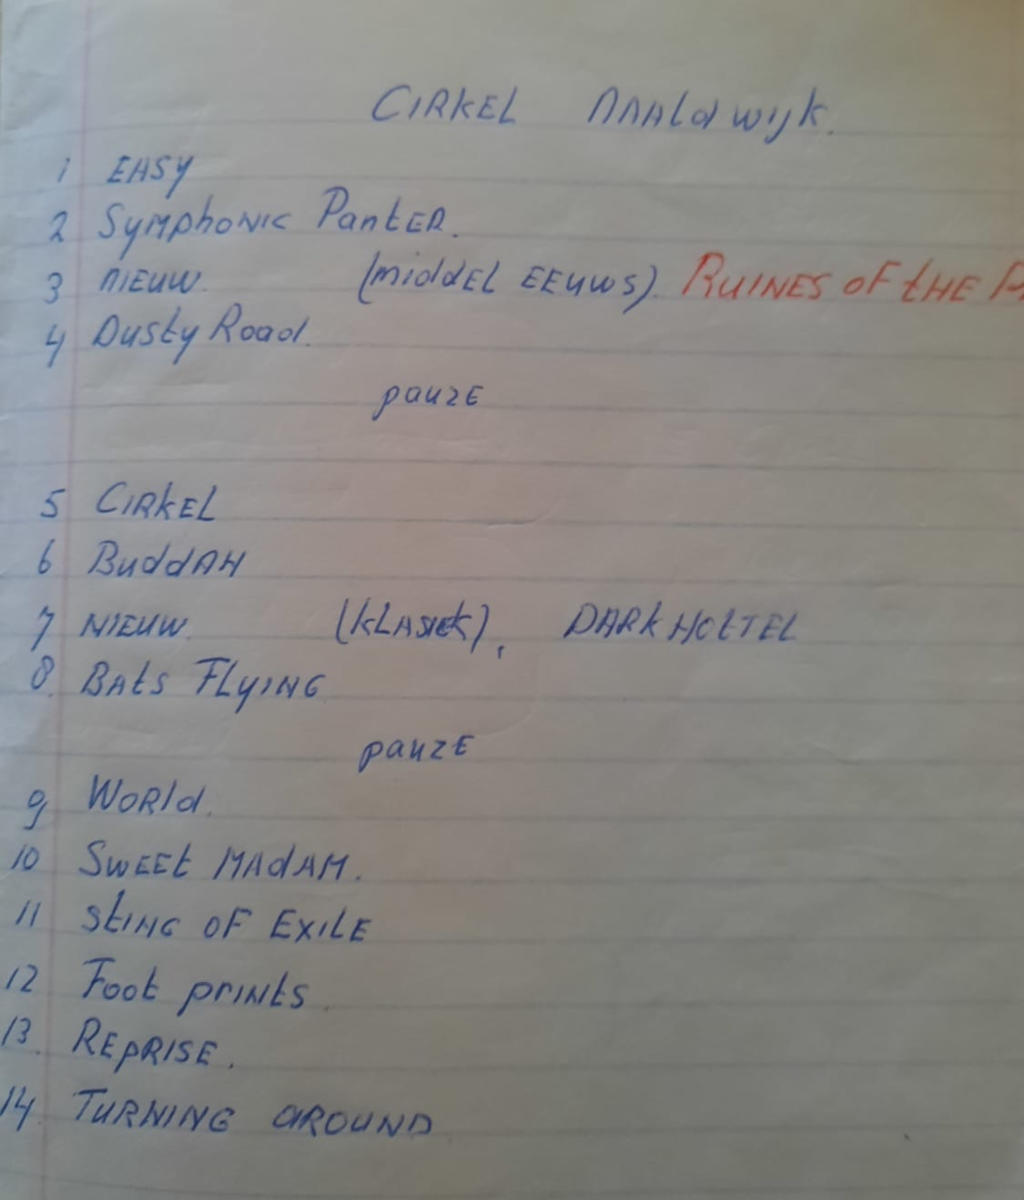 CIRKEL NAALdwijk.
1 EASY
2 SymphoNIC PantER.
3 NIEUW. (middEL EEUWS). RUINES OF tHE
4 Dusty Road.
pauzE
5 CIRKEL
6 BuddAH
7 NIEUW. (KLASIEK), DARK HOttEL
8. BAtS FLYING
pauzE
9 WORld.
10 SWEEt MAdAM.
11 StING OF EXILE
12 Foot prINtS.
13. REpRISE.
14 TURNING AROUND